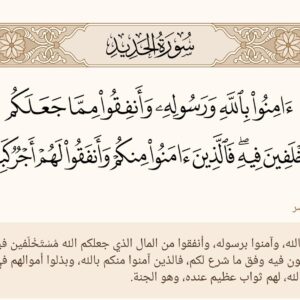 سُورَةُ الحَدِيدِ
ءَامِنُوا۟ بِٱللَّهِ وَرَسُولِهِۦ وَأَنفِقُوا۟ مِمَّا جَعَلَكُم
خْلَفِينَ فِيهِ ۖ فَٱلَّذِينَ ءَامَنُوا۟ مِنكُمْ وَأَنفَقُوا۟ لَهُمْ أَجْرٌ كَبِ
بالله، وآمنوا برسوله، وأنفقوا من المال الذي جعلكم الله مُسْتَخْلَفين في
ون فيه وفق ما شرع لكم، فالذين آمنوا منكم بالله، وبذلوا أموالهم في
الله، لهم ثواب عظيم عنده، وهو الجنة.